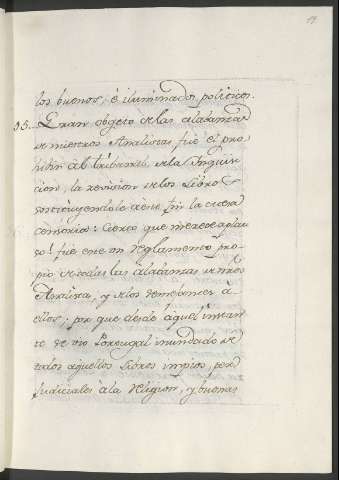 19
los buenos, é iluminados politicos.
35. Gran objeto de las alabanzas
de nuestros Analistas, fue el pro
hibir al tribunal de la Inquisi
cion, la revision de los Libros
sostituyendole à este fin la
censorio: Cierto que merece aplau
so! fue este un reglamento pro
pio de todas las alabanzas de nros
Analistas, y de los demejantes à
ellos; por que desde aquel instan
te se vio Portugal inundado de
todos aquellos Libros impios, per
judiciales à la religion, y buenas